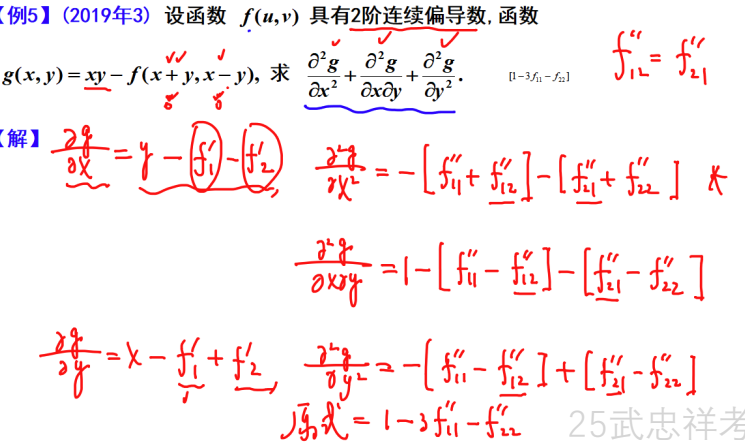 【例5】(2019年3) 设函数 f(u,v) 具有2阶连续偏导数,函数
g(x,y)=xy−f(x+y,x−y), 求 ∂²g/∂x² + ∂²g/∂x∂y + ∂²g/∂y². [1−3f₁₁−f₂₂]
f₁₂″ = f₂₁″
【解】 ∂g/∂x = y − f₁′ − f₂′,
∂²g/∂x² = −[f₁₁″ + f₁₂″] − [f₂₁″ + f₂₂″]
∂²g/∂x∂y = 1 − [f₁₁″ − f₁₂″] − [f₂₁″ − f₂₂″]
∂g/∂y = x − f₁′ + f₂′,
∂²g/∂y² = −[f₁₁″ − f₁₂″] + [f₂₁″ − f₂₂″]
原式 = 1 − 3f₁₁″ − f₂₂″
25武忠祥考